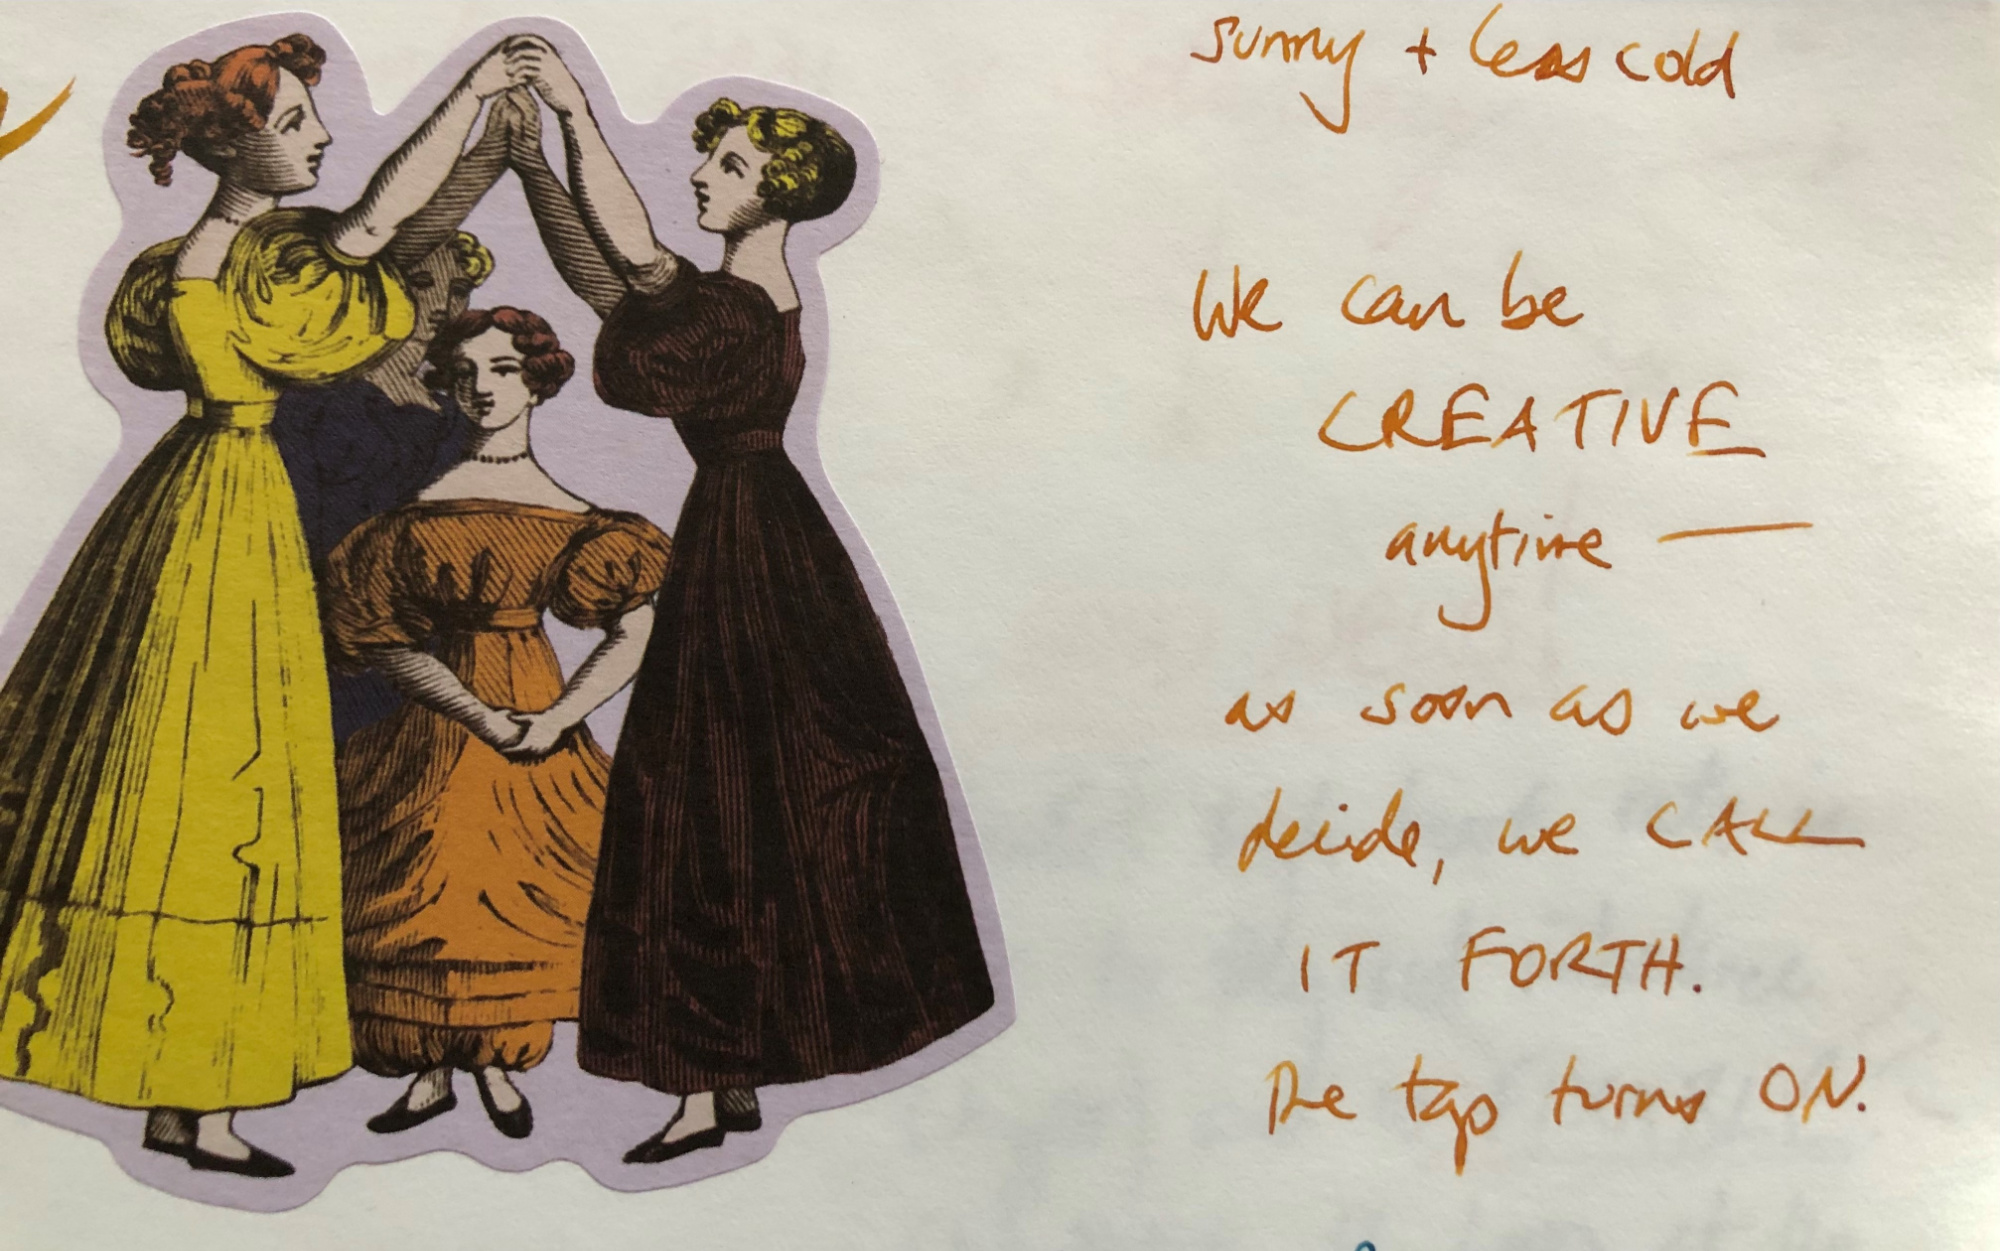 sunny + less cold
We can be
CREATIVE
anytime —
as soon as we
decide, we CALL
IT FORTH.
The tap turns ON.